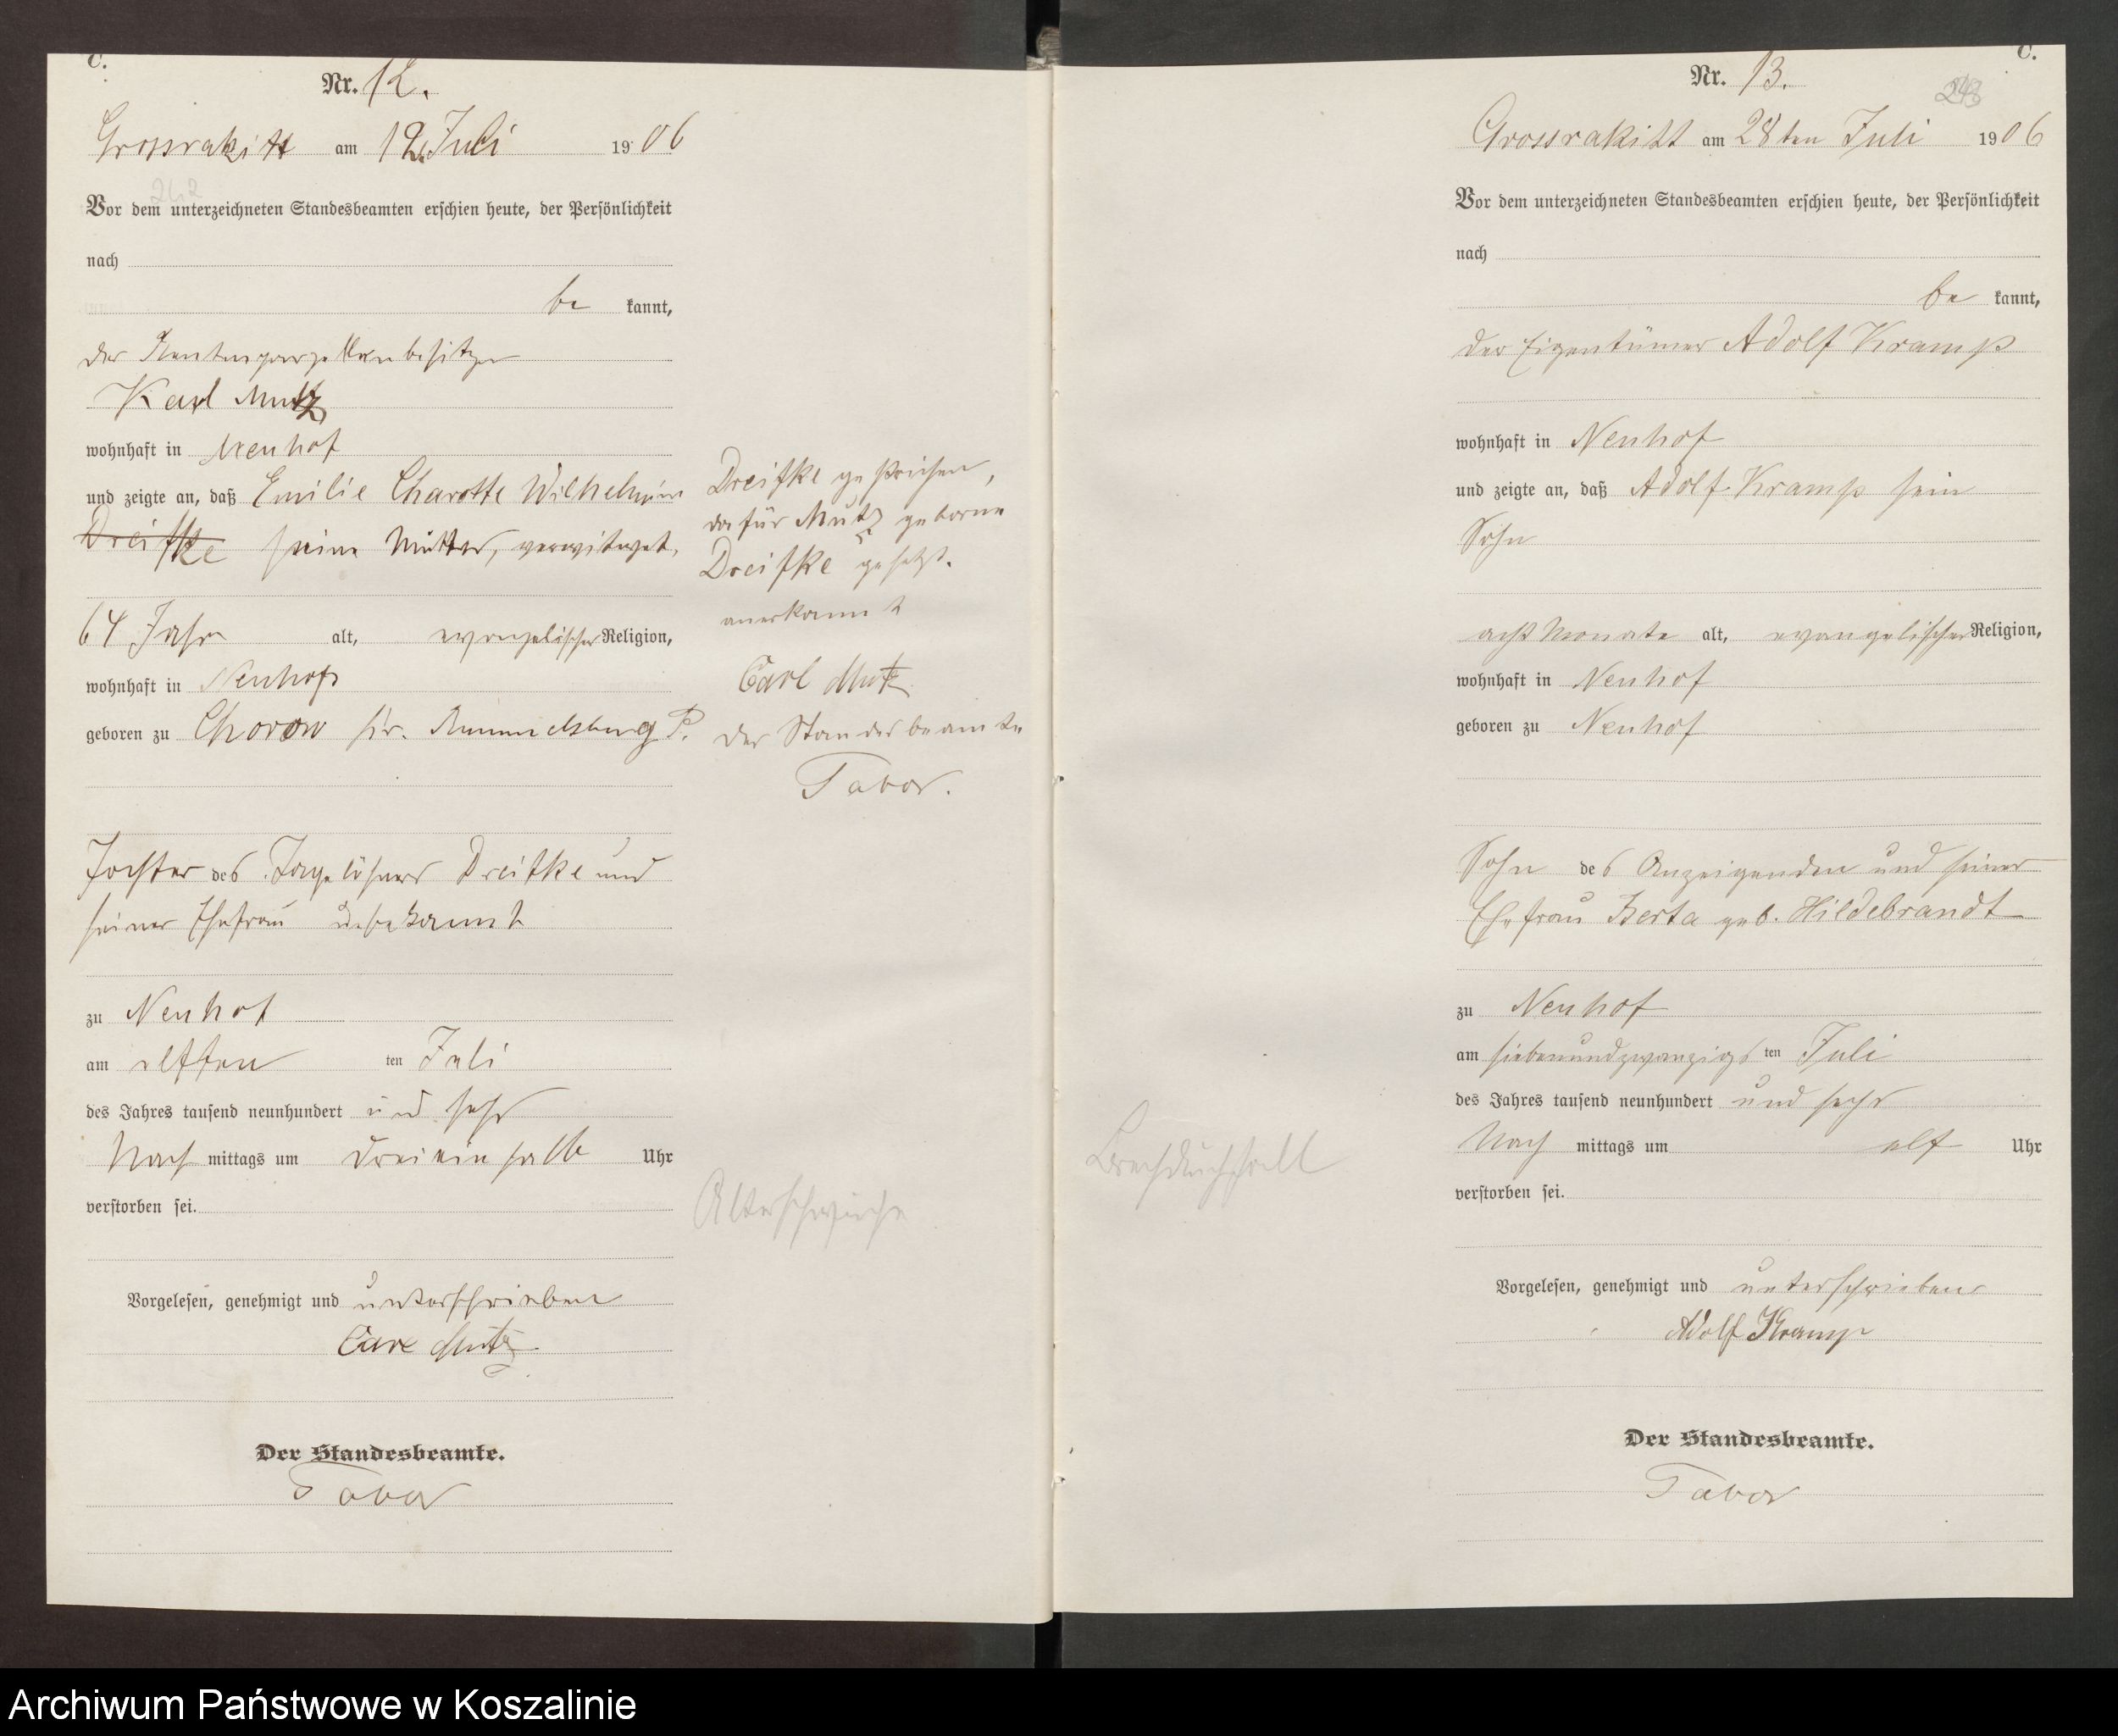 C.
Nr. 12.
Grossrakitt am 12. Juli 1906
242
Vor dem unterzeichneten Standesbeamten erschien heute, der Persönlichkeit
nach
be kannt,
der Rentenparzellenbesitzer
Karl Mutz
wohnhaft in Neuhof
und zeigte an, daß Emilie Charotte Wilhelmine
Dreifke seine Mutter, verwitwet,
64 Jahre alt, evangelischer Religion,
wohnhaft in Neuhof
geboren zu Chorow Kr. Rummelsburg P.
Tochter des Tagelöhners Dreifke und
seiner Ehefrau unbekannt
zu Neuhof
am elften ten Juli
des Jahres tausend neunhundert und sechs
Nach mittags um drei ein halb Uhr
verstorben sei.
Vorgelesen, genehmigt und unterschrieben
Carl Mutz
Der Standesbeamte.
Tabor
Dreifke gestrichen,
dafür Mutz geborene
Dreifke gesetzt.
anerkannt
Carl Mutz
Der Standesbeamte
Tabor.
Altersschwäche
C.
Nr. 13.
243
Grossrakitt am 28ten Juli 1906
Vor dem unterzeichneten Standesbeamten erschien heute, der Persönlichkeit
nach
be kannt,
der Eigentümer Adolf Kramp
wohnhaft in Neuhof
und zeigte an, daß Adolf Kramp sein
Sohn
acht Monate alt, evangelischer Religion,
wohnhaft in Neuhof
geboren zu Neuhof
Sohn des Anzeigenden und seiner
Ehefrau Berta geb. Hildebrandt
zu Neuhof
am siebenundzwanzigs ten Juli
des Jahres tausend neunhundert und sechs
Nach mittags um elf Uhr
verstorben sei.
Brechdurchfall
Vorgelesen, genehmigt und unterschrieben
Adolf Kramp
Der Standesbeamte.
Tabor
Archiwum Państwowe w Koszalinie